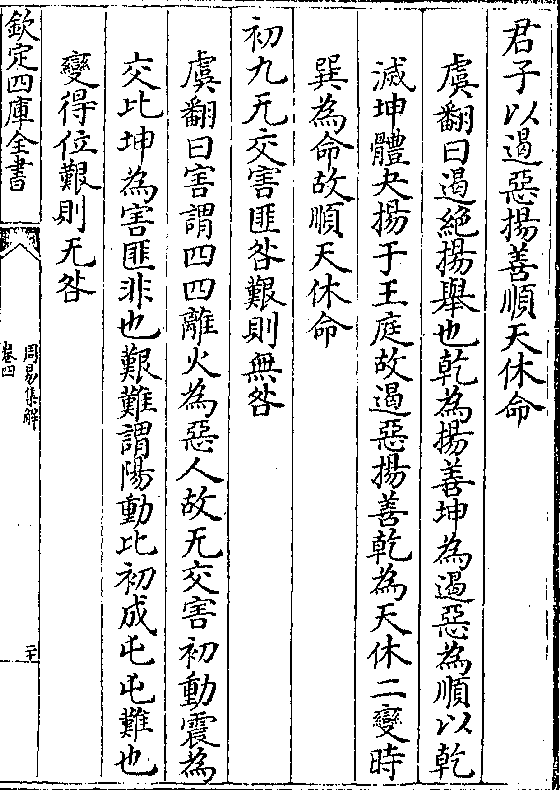 君子以遏惡揚善順天休命
虞翻曰遏絶揚舉也乾為揚善坤為遏惡為順以乾
滅坤體夬揚于王庭故遏惡揚善乾為天休二變時
巽為命故順天休命
初九无交害匪咎艱則無咎
虞翻曰害謂四四離火為惡人故无交害初動震為
交比坤為害匪非也艱難謂陽動比初成屯屯難也
變得位艱則无咎
欽定四庫全書
周易集解
卷四
二十